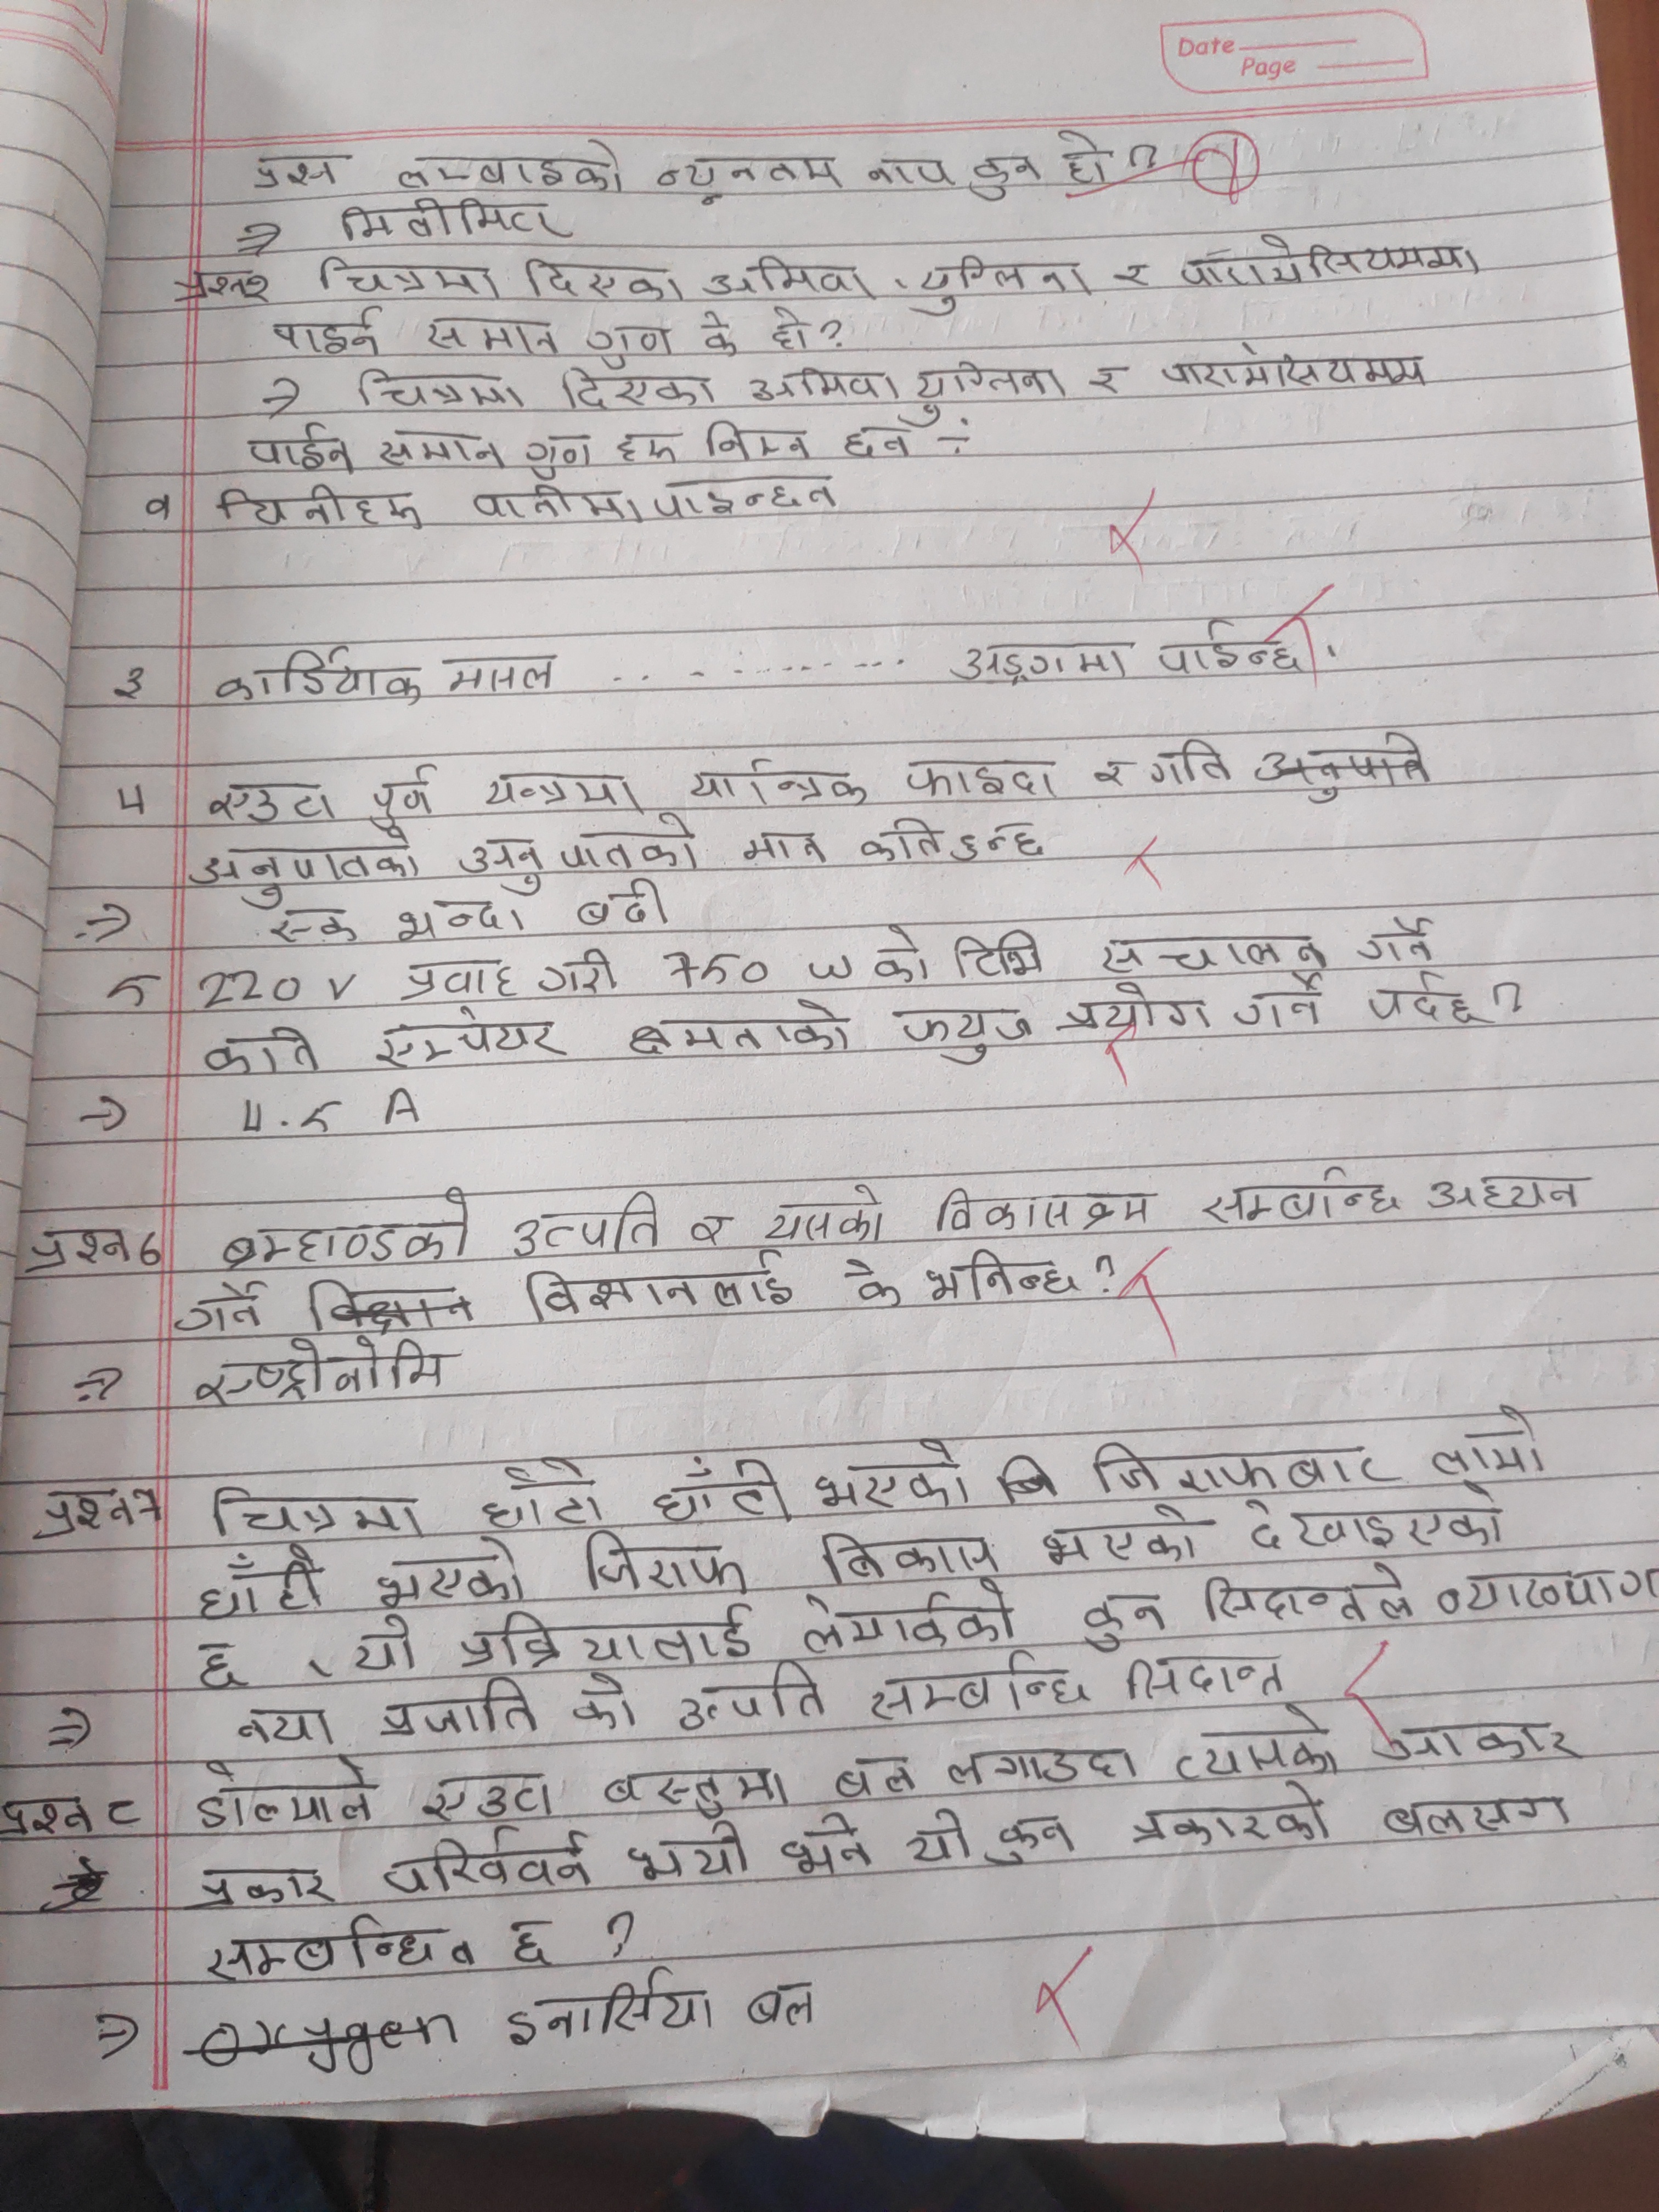 Date
Page
प्रश्न लम्बाइको न्यूनतम नाप कुन हो?
⇒ मिलीमिटर
प्रश्न२ चित्रमा दिएका अमिवा, युग्लिना र पारामेसियममा
पाइने समान गुण के हो?
⇒ चित्रमा दिएका अमिवा युग्लिना र पारामेसियममा
पाईने समान गुण हरू निम्न छन ÷
१ यिनीहरू पानीमा पाइन्छन
३ कार्डियाक मासल .............. अङ्गमा पाईन्छ।
४ एउटा पुर्ण यन्त्रमा यान्त्रिक फाइदा र गति अनुपाते
अनुपातको अनुपातको मान कति हुन्छ
⇒ एक भन्दा बढी
५ 220 V प्रवाह गरी 750 W को टिभि सचालन गर्ने
कति एम्पेयर क्षमताको फ्युज प्रयोग गर्ने पर्दछ?
⇒ ४.५ A
प्रश्न६ ब्रम्हाण्डको उत्पति र यसको विकासक्रम सम्बन्धि अध्यन
गर्ने विज्ञान विज्ञानलाई के भनिन्छ?
⇒ एष्ट्रोनोमि
प्रश्न७ चित्रमा छोटो घाँटी भएको जि जिराफबाट लामो
घाँटी भएको जिराफ विकास भएको देखाइएको
छ, यो प्रक्रियालाई लेमार्कको कुन सिदान्तले व्याख्याग
⇒ नया प्रजाति को उत्पति सम्बन्धि सिदान्त
प्रश्न ८ डोल्माले एउटा बस्तुमा बल लगाउदा त्यसको आकार
प्रकार परिर्वर्न भयो भने यो कुन प्रकारको बलसग
सम्बन्धित छ ?
⇒ Oxygen इनार्सिया बल